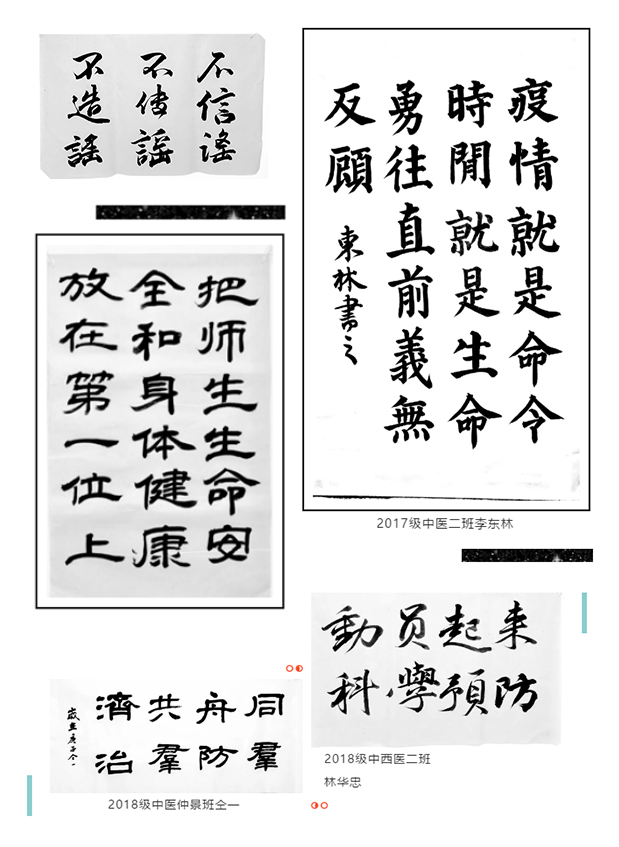 不信谣
不传謠
不造謠
疫情就是命令
時閒就是生命
勇往直前義無
反顧
東林書之
2017级中医二班李东林
把师生生命安
全和身体健康
放在第一位上
動员起来
科學預防
2018级中西医二班
林华忠
同舟共濟
羣防羣治
歲在庚子仝一
2018级中医仲景班仝一